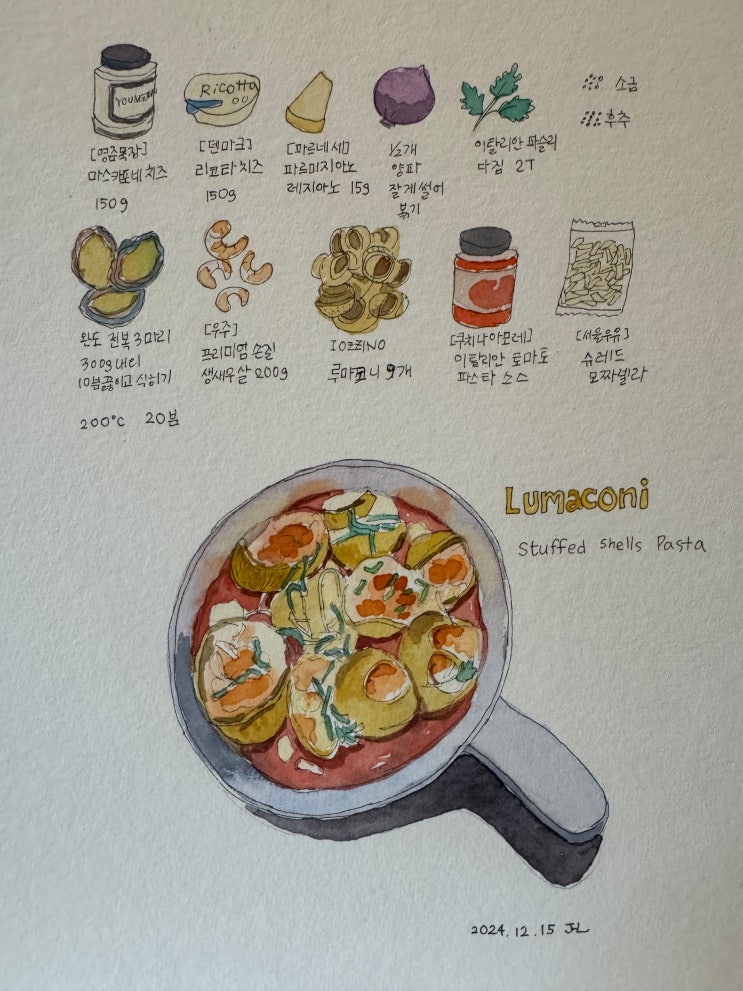 YOUNG
[영준목장]
마스카포네 치즈
150g
RICOTTA
[덴마크]
리코타 치즈
150g
[파르네세]
파르미지아노
레지아노 15g
1/2개
양파
잘게 썰어
볶기
이탈리안 파슬리
다짐 2T
소금
후추
완도 전복 3마리
300g 내외
10분 끓이고 식히기
[우주]
프리미엄 손질
생새우살 200g
IOZZINO
루마코니 9개
[쿠치나아모레]
이탈리안 토마토
파스타 소스
[서울우유]
슈레드
모짜렐라
200°C 20분
Lumaconi
Stuffed Shells Pasta
2024.12.15 JHL